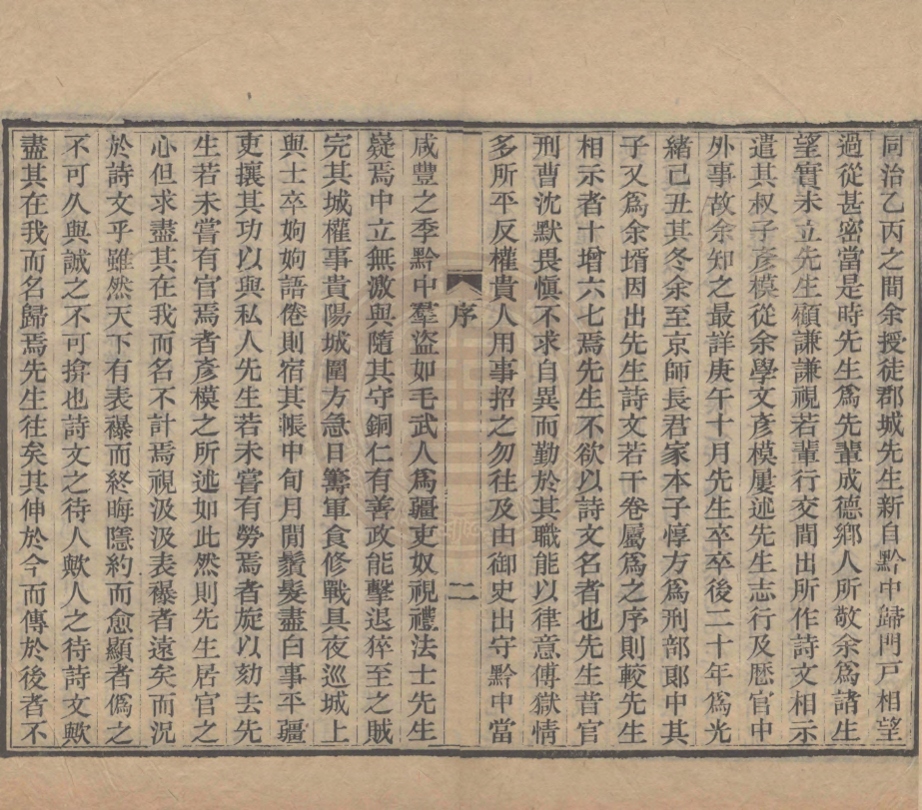 同治乙丙之間余授徒郡城先生新自黔中歸門戸相望
過從甚密當是時先生爲先輩成德鄉人所敬余爲諸生
望實未立先生顧謙謙視若輩行交間出所作詩文相示
遣其叔子彥模從余學文彥模屢述先生志行及歷官中
外事故余知之最詳庚午十月先生卒卒後二十年爲光
緒己丑其冬余至京師長君家本子惇方爲刑部郎中其
子又爲余壻因出先生詩文若干卷屬爲之序則較先生
相示者十增六七焉先生不欲以詩文名者也先生昔官
刑曹沈默畏愼不求自異而勤於其職能以律意傅獄情
多所平反權貴人用事招之勿往及由御史出守黔中當
序
二
咸豐之季黔中羣盜如毛武人爲疆吏奴視禮法士先生
嶷焉中立無激與隨其守銅仁有善政能擊退猝至之賊
完其城權事貴陽城圍方急日籌軍食修戰具夜巡城上
與士卒姁姁語倦則宿其帳中旬月閒鬚髮盡白事平疆
吏攘其功以與私人先生若未嘗有勞焉者旋以劾去先
生若未嘗有官焉者彥模之所述如此然則先生居官之
心但求盡其在我而名不計焉視汲汲表襮者遠矣而況
於詩文乎雖然天下有表襮而終晦隱約而愈顯者僞之
不可久與誠之不可揜也詩文之待人歟人之待詩文歟
盡其在我而名歸焉先生往矣其伸於今而傳於後者不